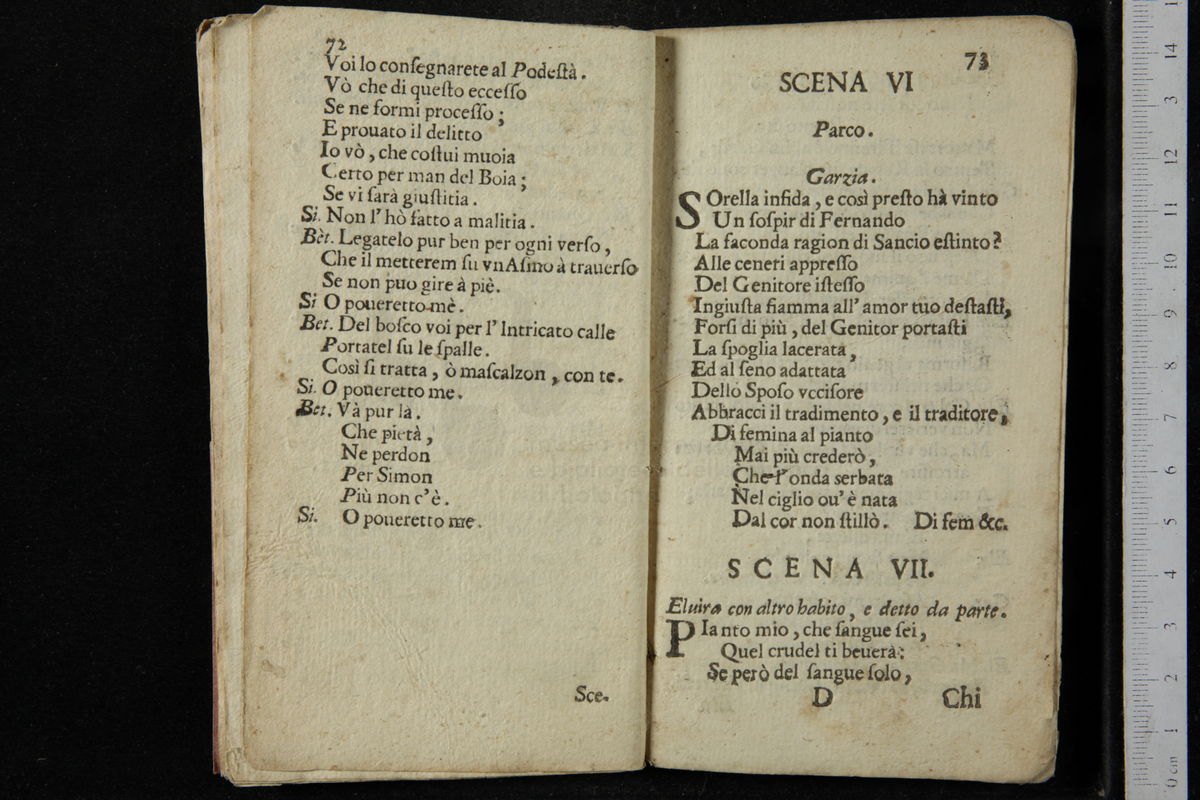 72
Voi lo conſegnarete al Podeſtà.
Vò che di queſto ecceſſo
Se ne formi proceſſo;
E prouato il delitto
Io vò, che coſtui muoia
Certo per man del Boia;
Se vi ſarà giuſtitia.
Si. Non l'hò fatto a malitia.
Bet. Legatelo pur ben per ogni verſo,
Che il metterem ſu vnAſino à trauerſo
Se non può gire à piè.
Si O poueretto mè.
Bet. Del boſco voi per l'Intricato calle
Portatel ſu le ſpalle.
Così ſi tratta, ò maſcalzon, con te.
Si. O poueretto me.
Bet. Và pur là.
Che pietà,
Ne perdon
Per Simon
Più non c'è.
Si. O poueretto me.
Sce-
73
SCENA VI
Parco.
Garzia.
SOrella infida, e così preſto hà vinto
Un ſoſpir di Fernando
La faconda ragion di Sancio eſtinto?
Alle ceneri appreſſo
Del Genitore iſteſſo
Ingiuſta fiamma all'amor tuo deſtaſti,
Forſi di più, del Genitor portaſti
La ſpoglia lacerata,
Ed al ſeno adattata
Dello Spoſo vcciſore
Abbracci il tradimento, e il traditore,
Di femina al pianto
Mai più crederò,
Che l'onda serbata
Nel ciglio ou'è nata
Dal cor non ſtillò. Di fem &c.
SCENA VII.
Eluira con altro habito, e detto da parte.
PIanto mio, che ſangue ſei,
Quel crudel ti beuerà:
Se però del ſangue ſolo,
D Chi
0 cm 1 2 3 4 5 6 7 8 9 10 11 12 3 14 1